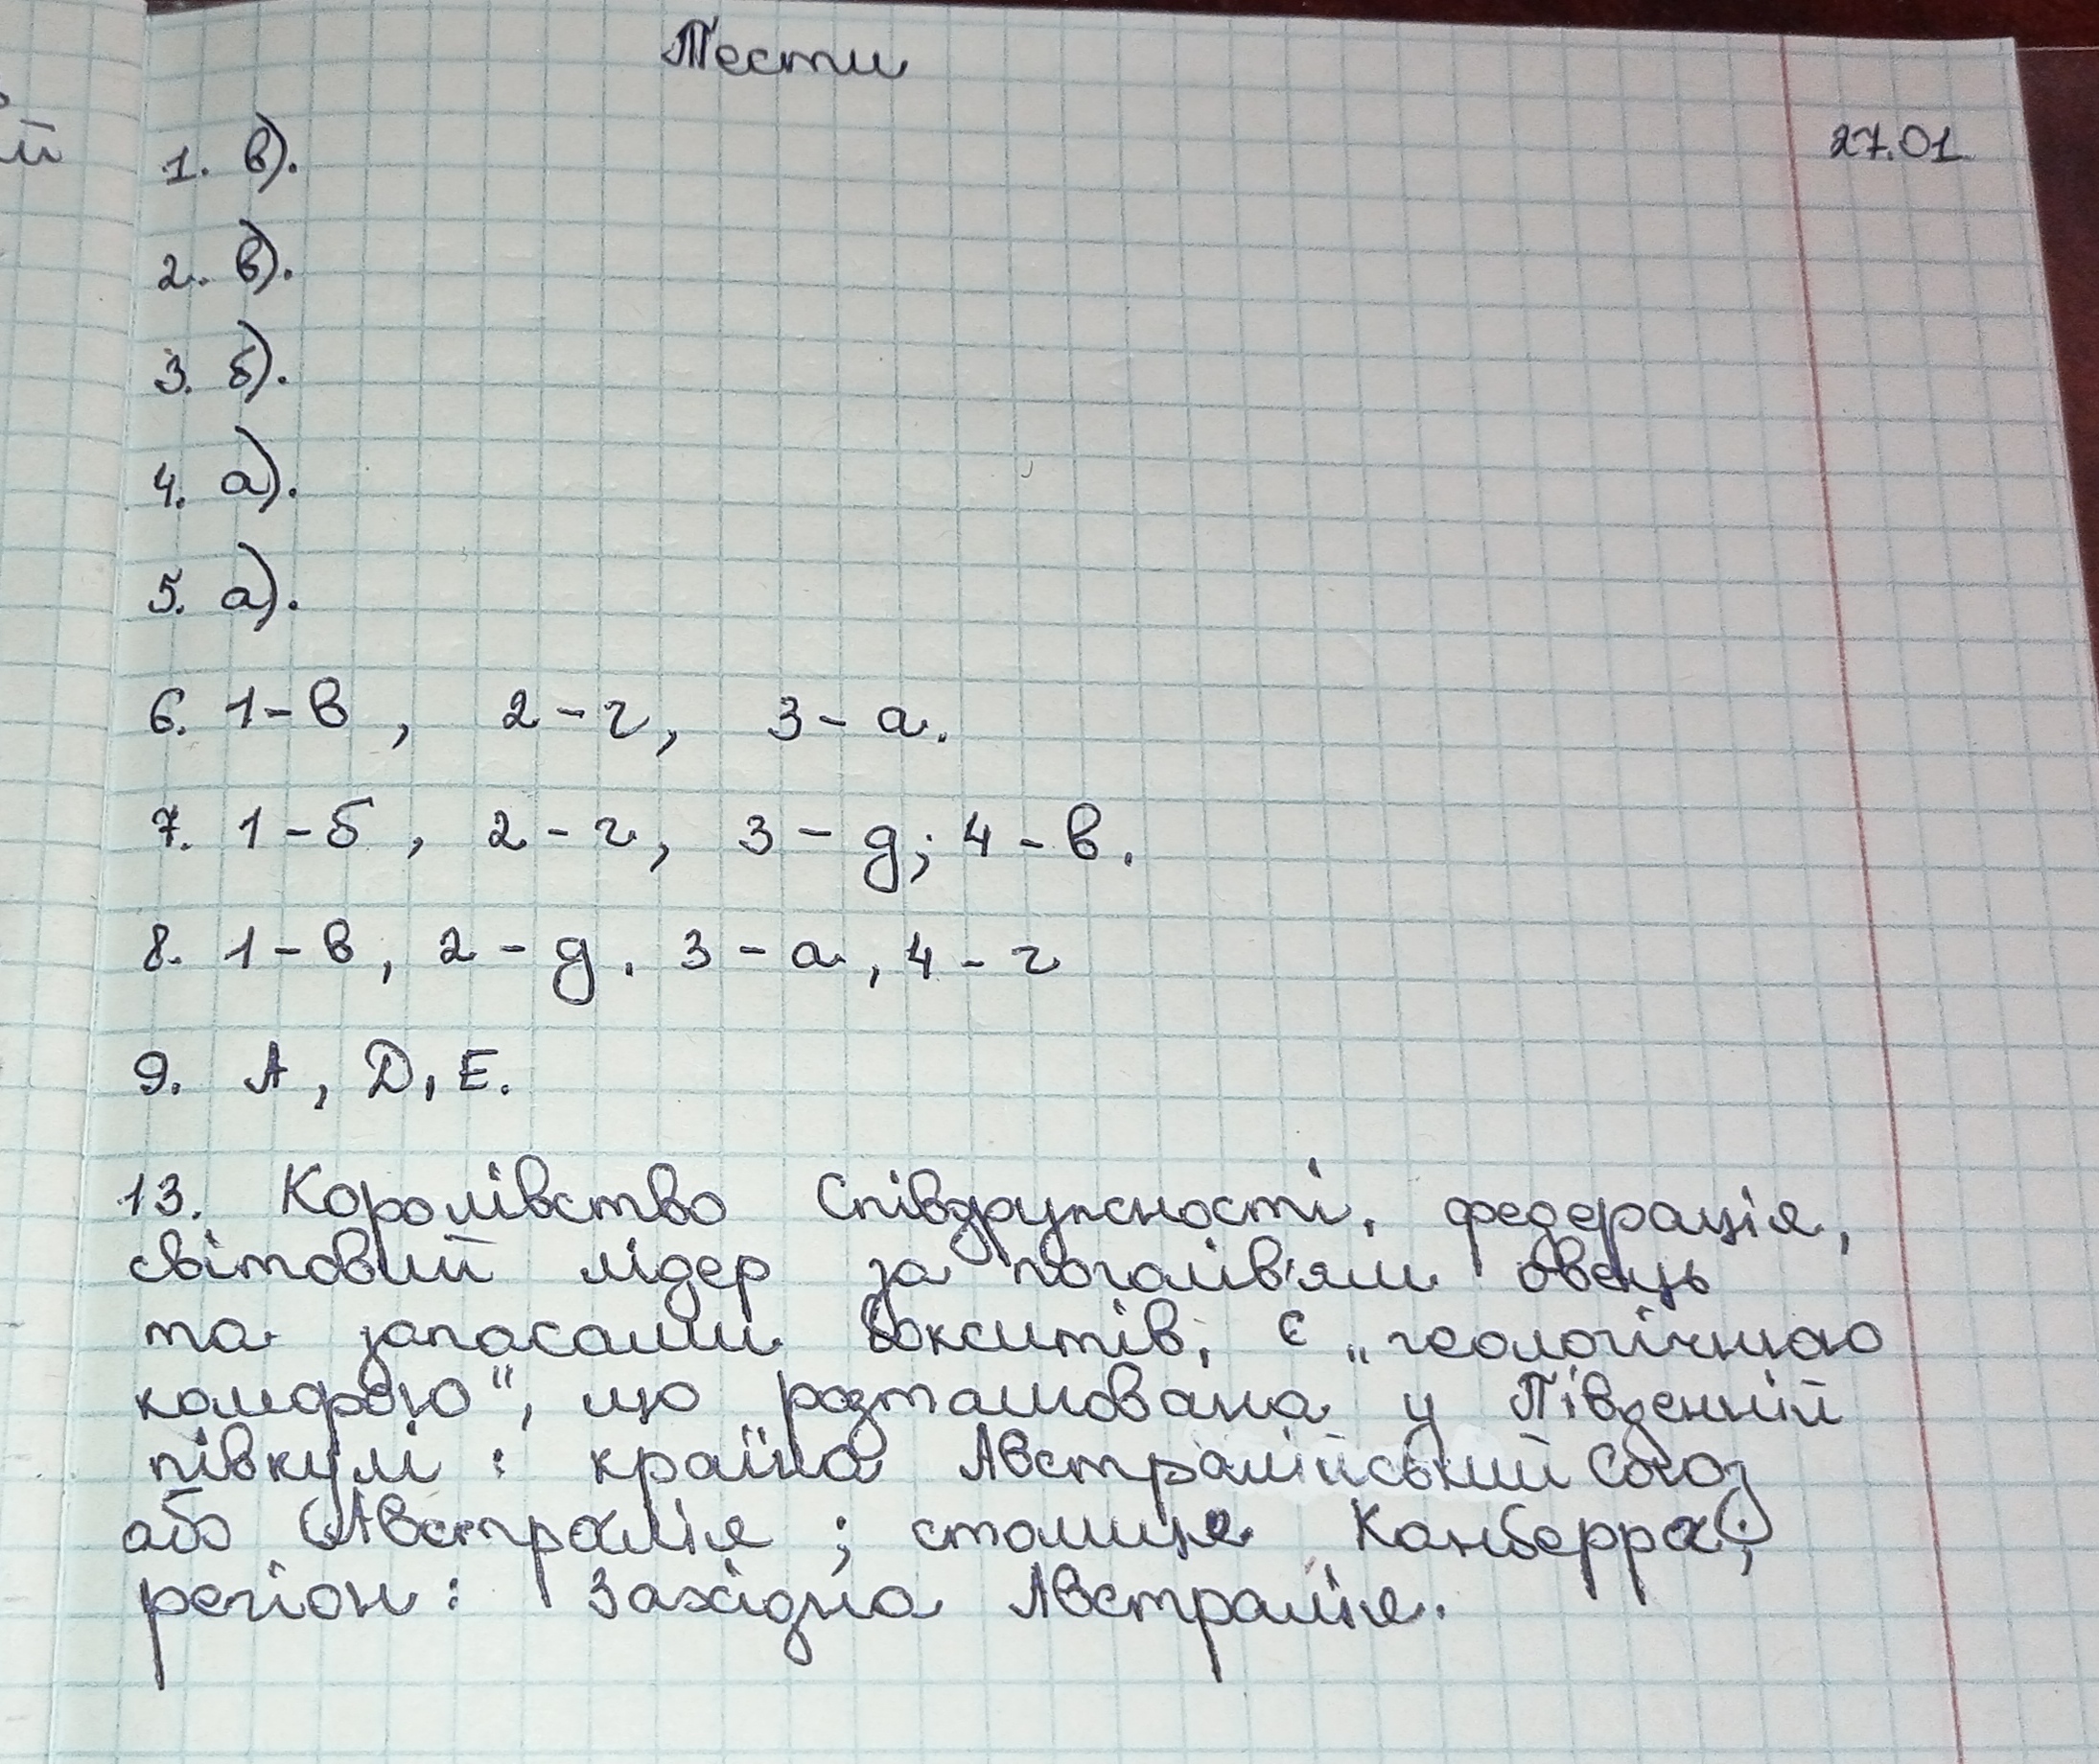 Тести
27.01
1. в).
2. в).
3. б).
4. а).
5. а).
6. 1-в, 2-г, 3-а.
7. 1-б, 2-г, 3-д; 4-в.
8. 1-в, 2-д. 3-а, 4-г
9. А, Д, Е.
13. Королівство Співдружності, федерація,
світовий лідер за поголів'ям овець
та запасами бокситів, є „геологічною
коморою", що розташована у Південній
півкулі : країна Австралійський Союз
або (Австралія ; столиця Канберра;)
регіон: Західна Австралія.
ий